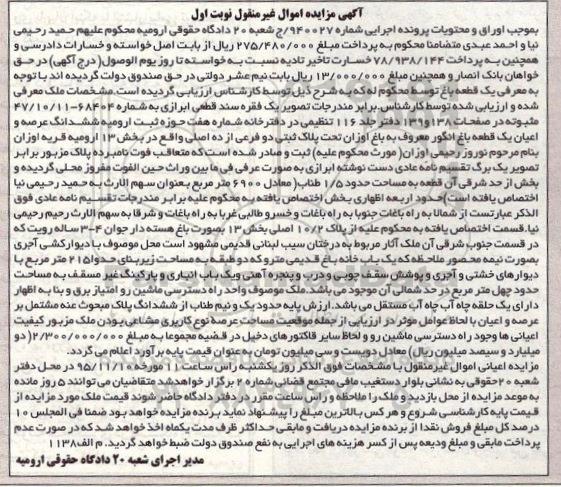 آگهی مزایده اموال غیرمنقول نوبت اول
بموجب اوراق و محتویات پرونده اجرایی شماره ۹۴۰۰۲۷/ج شعبه ۲۰ دادگاه حقوقی ارومیه محکوم علیهم حمید رحیمی
نیا و احمد عبدی متضامنا محکوم به پرداخت مبلغ ۲۷۵/۴۸۰/۰۰۰ ریال از بابت اصل خواسته و خسارات دادرسی و
همچنین به پرداخت ۷۸/۹۳۸/۱۴۴ خسارت تاخیر تادیه نسبت به خواسته تا روز یوم الوصول( درج آگهی) در حق
خواهان بانک انصار و همچنین مبلغ ۱۳/۰۰۰/۰۰۰ ریال بابت نیم عشر دولتی در حق صندوق دولت گردیده اند با توجه
به معرفی یک قطعه باغ توسط محکوم له که به شرح ذیل توسط کارشناس ارزیابی گردیده است.مشخصات ملک معرفی
شده و ارزیابی شده توسط کارشناس.برابر مندرجات تصویر یک فقره سند قطعی ابرازی به شماره ۶۸۴۰۴-۴۷/۱۰/۱۱
مثبوته در صفحات ۱۳۸و۱۳۹ دفتر جلد ۱۱۶ تنظیمی در دفترخانه شماره هفت حوزه ثبت ارومیه ششدانگ عرصه و
اعیان یک قطعه باغ انگور معروف به باغ اوزان تحت پلاک ثبتی دو فرعی از ده اصلی واقع در بخش ۱۳ ارومیه قریه اوزان
بنام مرحوم نوروز رحیمی اوزان( مورث محکوم علیه) ثبت و صادر شده است که متعاقب فوت نامبرده پلاک مزبور برابر
تصویر یک برگ تقسیم نامه عادی دست نوشته ابرازی به صورت عرفی فی ما بین وراث حین الفوت مفروز محلی گردیده و
بخش از حد شرقی آن قطعه به مساحت حدود ۱/۵ طناب( معادل ۶۹۰۰ متر مربع بعنوان سهم الارث به حمید رحیمی نیا
اختصاص یافته است)حدود اربعه اظهاری بخش اختصاص یافته به محکوم علیه برابر مندرجات تقسیم نامه عادی فوق
الذکر عبارتست از شمالا به راه باغات جنوبا به راه باغات و خسرو طالبی غربا به راه باغات و شرقا به سهم الارث رحیم رحیمی
نیا.قسمت اختصاص یافته به محکوم علیه از پلاک ۱۰/۲ اصلی بخش ۱۳ بصورت باغ هسته دار جوان ۴-۳ ساله رویت که
در قسمت جنوب شرقی آن ملک آثار مربوط به درختان سیب لبنانی قدیمی مشهود است محل موصوف با دیوارکشی آجری
بصورت نیمه محصور ملاحظه که یک باب خانه باغ قدیمی مترو که دو طبقه به مساحت زیربنای حدوا۲۱۵ متر مربع با
دیوارهای خشتی و آجری و پوشش سقف چوبی و درب و پنجره آهنی ویک باب انباری و پارکینگ غیر مسقف به مساحت
حدود چهل متر مربع در حد شمالی آن موجود می باشد.ملک موصوف واحد راه دسترسی ماشین رو امتیاز برق و بنا به اظهار
دارای یک حلقه چاه آب چاه آب مستقل می باشد.ارزش پایه حدود یک و نیم طناب از ششدانگ پلاک مبحوث عنه مشتمل بر
عرصه و اعیان با لحاظ عوامل موثر در ارزیابی از جمله موقعیت مساحت عرصه نوع کاربری مشاعی بودن ملک مزبور کیفیت
اعیانی ها وجود راه دسترسی ماشین رو و لحاظ سایر فاکتورهای دخیل در قضیه مجموعا به مبلغ ۲/۳۰۰/۰۰۰/۰۰۰( دو
میلیارد و سیصد میلیون ریال) معادل دویست و سی میلیون تومان به عنوان قیمت پایه برآورد اعلام می گردد.
مزایده اعیانی اموال غیرمنقول با مشخصات فوق الذکر روز یکشنبه راس ساعت ۱۲ مورخه ۹۵/۱۱/۱۰ در محل دفتر
شعبه ۲۰حقوقی به نشانی بلوار دستغیب مافی مجتمع قضائی شماره ۲ برگزار خواهد شد متقاضیان می توانند ۵ روز مانده
به موعد مزایده از محل بازدید و ملک را ملاحظه و راس ساعت مقرر در دفتر دادگاه حاضر شوند قیمت ملک مورد مزایده از
قیمت پایه کارشناسی شروع و هر کس بالاترین مبلغ را پیشنهاد نماید برنده مزایده خواهد بود ضمنا فی المجلس ۱۰
درصد کل مبلغ فروش نقدا از برنده مزایده دریافت و مابقی حداکثر ظرف مدت یکماه اخذ خواهد شد که در صورت عدم
پرداخت مابقی و مبلغ ودیعه پس از کسر هزینه های اجرایی به نفع صندوق دولت ضبط خواهد گردید. م الف۱۱۳۸
مدیر اجرای شعبه ۲۰ دادگاه حقوقی ارومیه